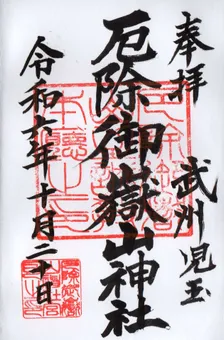 奉拝
武州児玉
厄除御嶽山神社
令和六年十月二十日